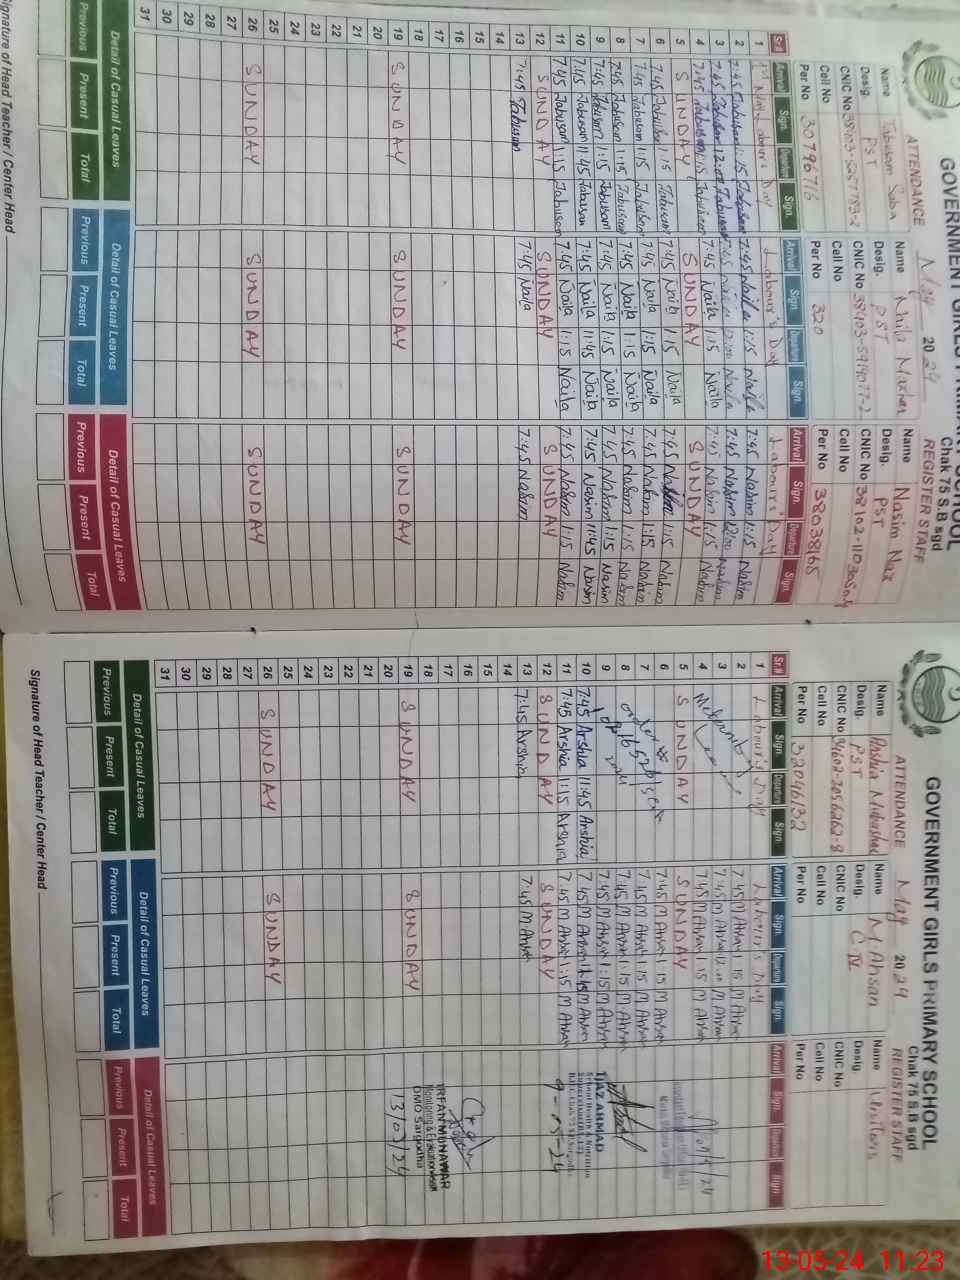 GOVERNMENT GIRLS PRIMARY SCHOOL
Chak 75 S.B sgd
ATTENDANCE May 2024 REGISTER STAFF
Name Tabusam Saba Name Naila Mazhar Name Nasim Naz
Desig. PST Desig. PST Desig. PST
CNIC No CNIC No CNIC No
Cell No Cell No Cell No
Per No 30796716 Per No 320 Per No 38038165
Sr.# Arrival Sign. Departure Sign. Arrival Sign. Departure Sign. Arrival Sign. Departure Sign.
1 Labour's Day Labour's Day Labour's Day
2 7:45 Tabusam 1:15 Tabusam 7:45 Naila 1:15 Naila 7:45 Nasim 1:15 Nasim
3 7:45 Tabusam 12:00 Tabusam 7:45 Naila 12:00 Naila 7:45 Nasim 12:00 Nasim
4 7:45 Tabusam 1:15 Tabusam 7:45 Naila 1:15 Naila 7:45 Nasim 1:15 Nasim
5 SUNDAY SUNDAY SUNDAY
6 7:45 Tabusam 1:15 Tabusam 7:45 Naila 1:15 Naila 7:45 Nasim 1:15 Nasim
7 7:45 Tabusam 1:15 Tabusam 7:45 Naila 1:15 Naila 7:45 Nasim 1:15 Nasim
8 7:45 Tabusam 1:15 Tabusam 7:45 Naila 1:15 Naila 7:45 Nasim 1:15 Nasim
9 7:45 Tabusam 1:15 Tabusam 7:45 Naila 1:15 Naila 7:45 Nasim 1:15 Nasim
10 7:45 Tabusam 11:45 Tabusam 7:45 Naila 11:45 Naila 7:45 Nasim 11:45 Nasim
11 7:45 Tabusam 1:15 Tabusam 7:45 Naila 1:15 Naila 7:45 Nasim 1:15 Nasim
12 SUNDAY SUNDAY SUNDAY
13 7:45 Tabusam 7:45 Naila 7:45 Nasim
14
15
16
17
18
19 SUNDAY SUNDAY SUNDAY
20
21
22
23
24
25
26 SUNDAY SUNDAY SUNDAY
27
28
29
30
31
Detail of Casual Leaves Detail of Casual Leaves Detail of Casual Leaves
Previous Present Total Previous Present Total Previous Present Total
Signature of Head Teacher / Center Head
GOVERNMENT GIRLS PRIMARY SCHOOL
Chak 75 S.B sgd
ATTENDANCE May 2024 REGISTER STAFF
Name Name M Ahsan Name Visitors
Desig. PST Desig. C IV Desig.
CNIC No CNIC No CNIC No
Cell No Cell No Cell No
Per No 32046132 Per No Per No
Sr.# Arrival Sign. Departure Sign. Arrival Sign. Departure Sign. Arrival Sign. Departure Sign.
1 Labour's Day Labour's Day
2 7:45 M Ahsan 1:15 M Ahsan
3 7:45 M Ahsan 12:00 M Ahsan
4 7:45 M Ahsan 1:15 M Ahsan
5 SUNDAY SUNDAY
6 7:45 M Ahsan 1:15 M Ahsan
7 7:45 M Ahsan 1:15 M Ahsan
8 7:45 M Ahsan 1:15 M Ahsan
9 7:45 M Ahsan 1:15 M Ahsan
10 7:45 Arshia 11:45 Arshia 7:45 M Ahsan M Ahsan
11 7:45 Arshia 1:15 Arshia 7:45 M Ahsan 1:15 M Ahsan
12 SUNDAY SUNDAY
13 7:45 Arshia 7:45 M Ahsan
14
15
16
17
18
19 SUNDAY SUNDAY
20
21
22
23
24
25
26 SUNDAY SUNDAY
27
28
29
30
31
IJAZ AHMAD
School Health & Nutrition
9-05-24
IRFAN MUNAWAR
DMO Sargodha
13/05/24
Detail of Casual Leaves Detail of Casual Leaves Detail of Casual Leaves
Previous Present Total Previous Present Total Previous Present Total
Signature of Head Teacher / Center Head
13-05-24 11:23